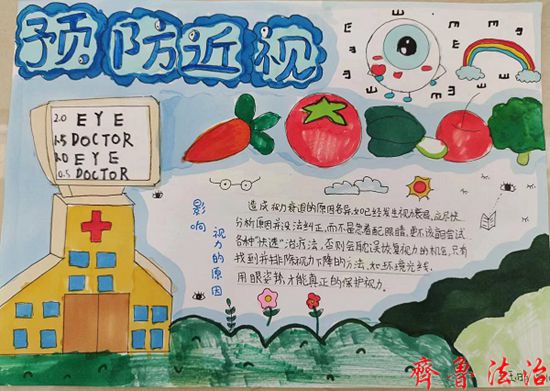 预防近视
E
E
E
E
E
E
E
2.0 EYE
1.5 DOCTOR
1.0 EYE
0.5 DOCTOR
影响视力的原因
造成视力衰退的原因各异,如已经发生视力衰弱,应尽快
分析原因并设法纠正,而不是急着配眼睛,更不该胡自尝试
各种"快速"治疗法,否则会耽误恢复视力的机会,只有
找到并排除视力下降的方法,如环境光线、
用眼姿势才能真正的保护视力。
齐鲁法治